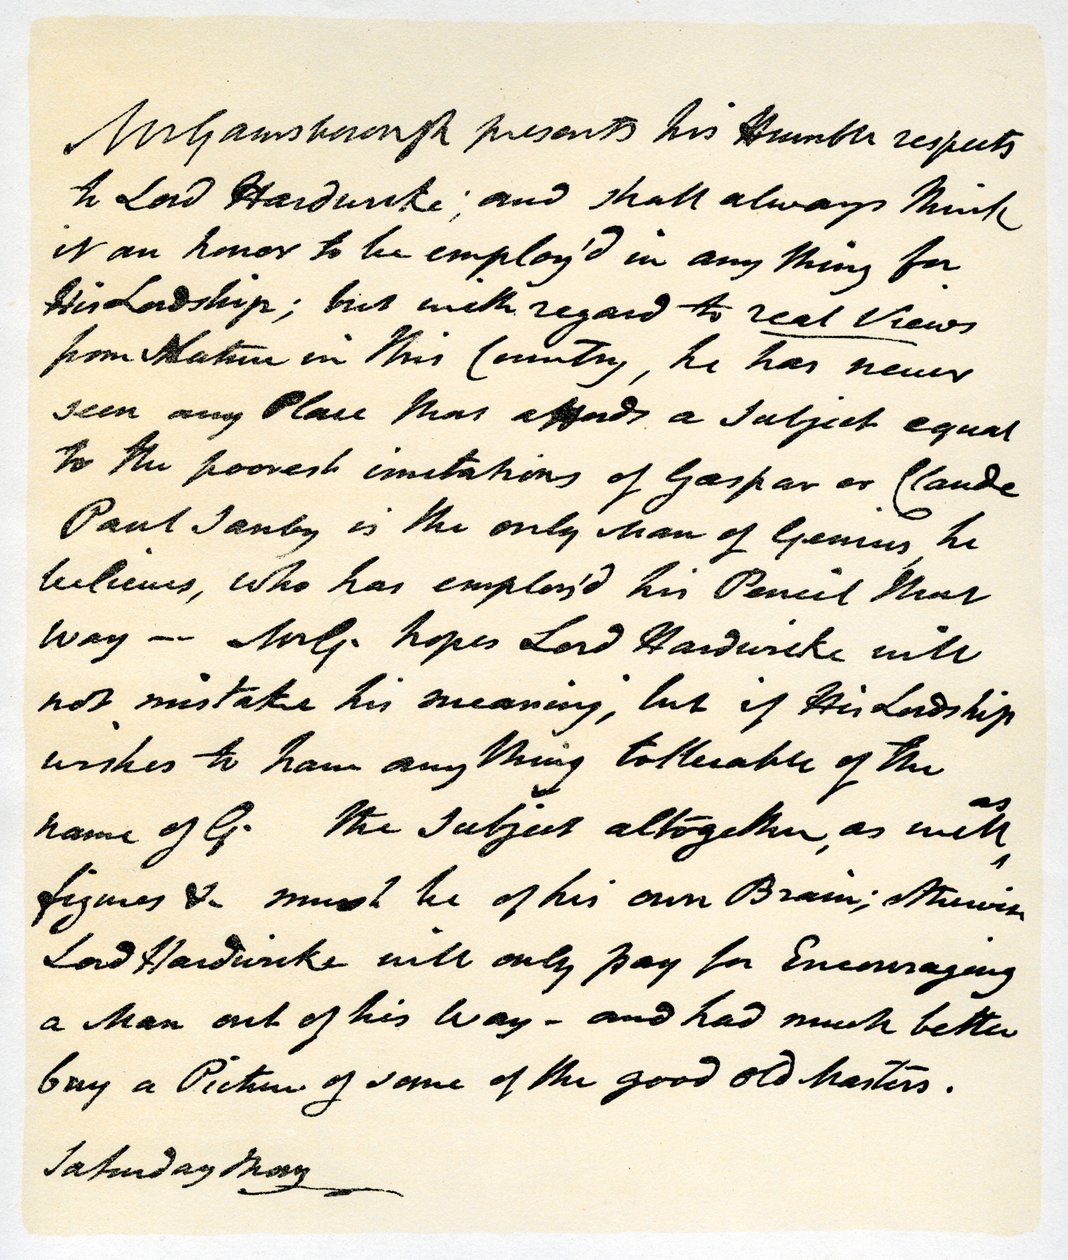 Mr Gainsborough presents his Humble respects
to Lord Hardwicke; and shall always think
it an honor to be employ'd in any thing for
His Lordship; but with regard to real Views
from Nature in this Country, he has never
seen any Place that affords a Subject equal
to the poorest imitations of Gaspar or Claude
Paul Sanby is the only Man of Genius, he
believes, who has employ'd his Pencil that
Way — Mr G. hopes Lord Hardwicke will
not mistake his meaning, but if His Lordship
wishes to have any thing tollerable of the
name of G. the Subject altogether, as well as
figures &c must be of his own Brain; otherwise
Lord Hardwicke will only pay for Encouraging
a Man out of his Way - and had much better
buy a Picture of some of the good old Masters.
Saturday Morng